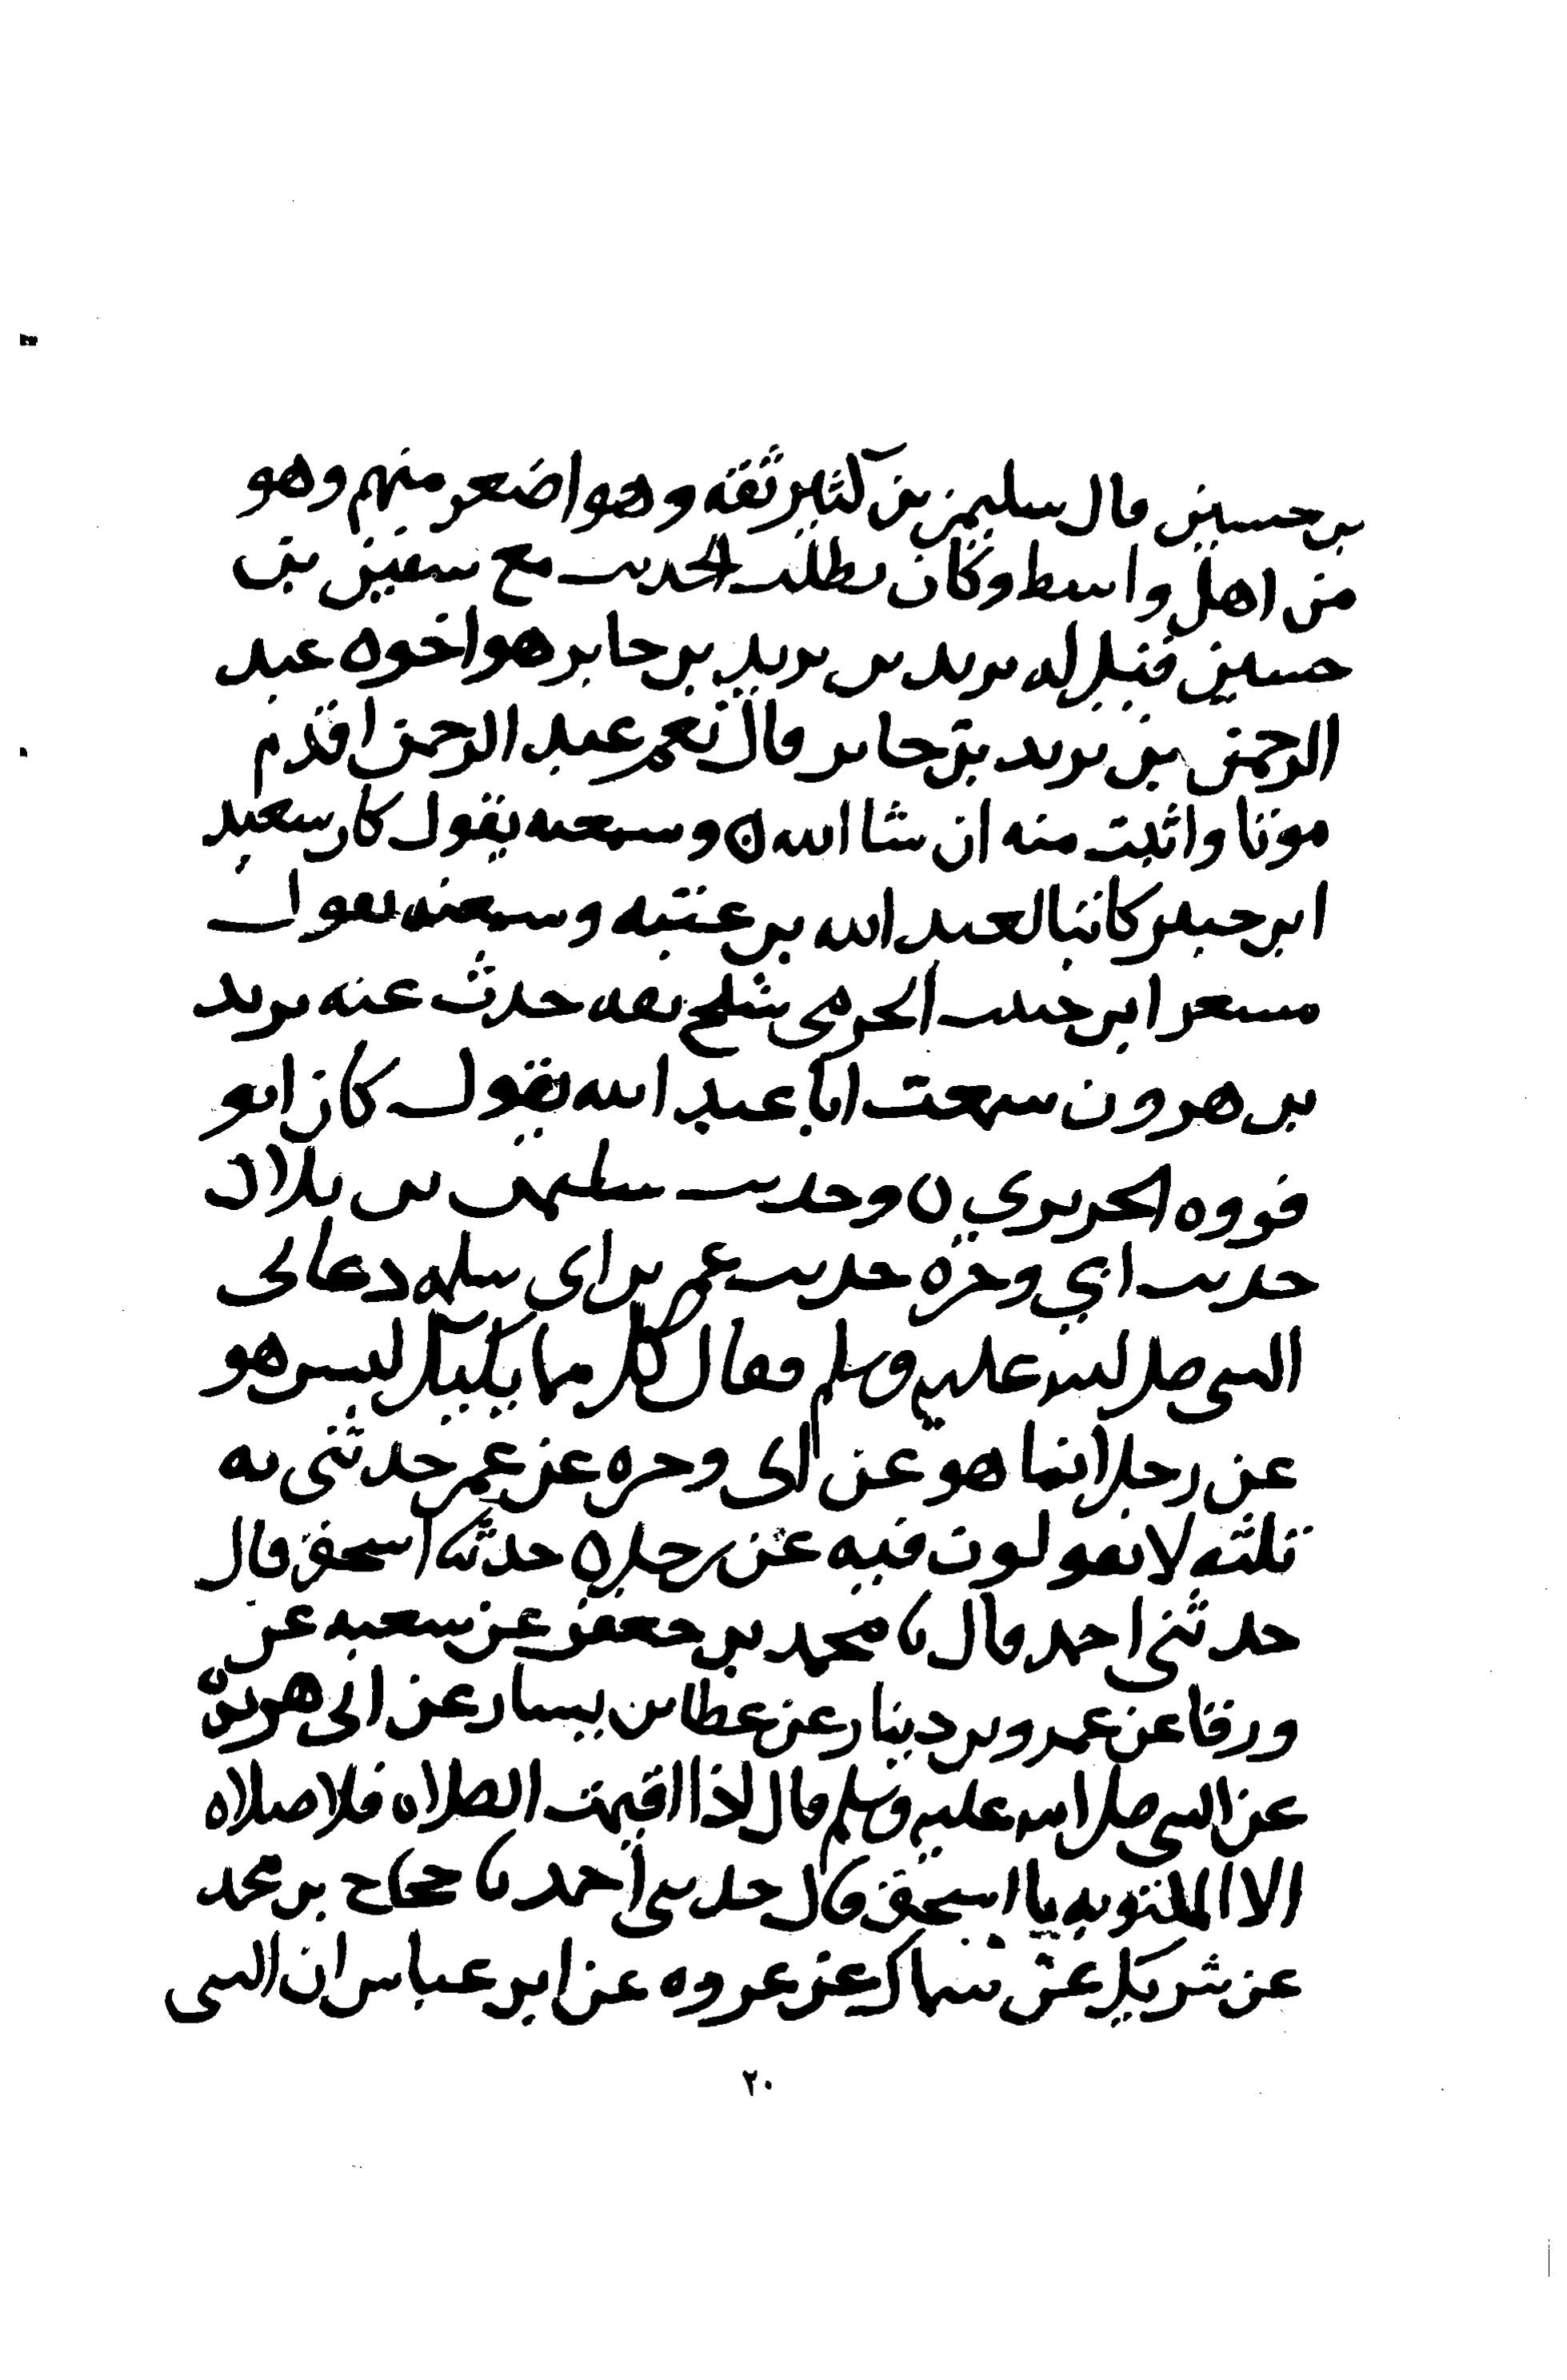 بن حسين قال سليمن بن كثير ثقه وهو اصغر منهم وهو
من اهل واسط وكان يطلب الحديث مع سفين بن
حسين فقيل له يزيد بن يزيد بن جابر هو اخوه عبد
الرحمن بن يزيد بن جابر قال نعم عبد الرحمن اقدم
موتا واثبت منه ان شا الله ن وسمعته يقول كان سعيد
ابن جبير كاتبا لعبد الله بن عتبه وسمعته يقول
مسعر ابن حبيب الجرمي شيخ ثقه حدث عنه يزيد
بن هرون سمعت ابا عبد الله يقول كان ابو
فروه الجريري ن وحديث سليمن بن بلال
حديث ابي وجزة حديث عمر بن ابي سلمه دعاني
النبي صلى الله عليه وسلم فقال كل مما يليك ليس هو
عن رجل انما هو عن ابي وجزه عن عمر حدثني به
ثلثه لا يقولون فيه عن رجل ه حدثنا اسحق قال
حدثني احمد قال نا محمد بن جعفر عن شعبه عن
ورقا عن عمرو بن دينار عن عطا بن يسار عن ابي هريرة
عن النبي صلى الله عليه وسلم قال اذا اقيمت الصلاه فلا صلاه
الا المكتوبه نا اسحق قال حدثني احمد نا حجاج بن محمد
عن شريك عن سماك عن عروه عن ابن عباس ان النبي
٢٠